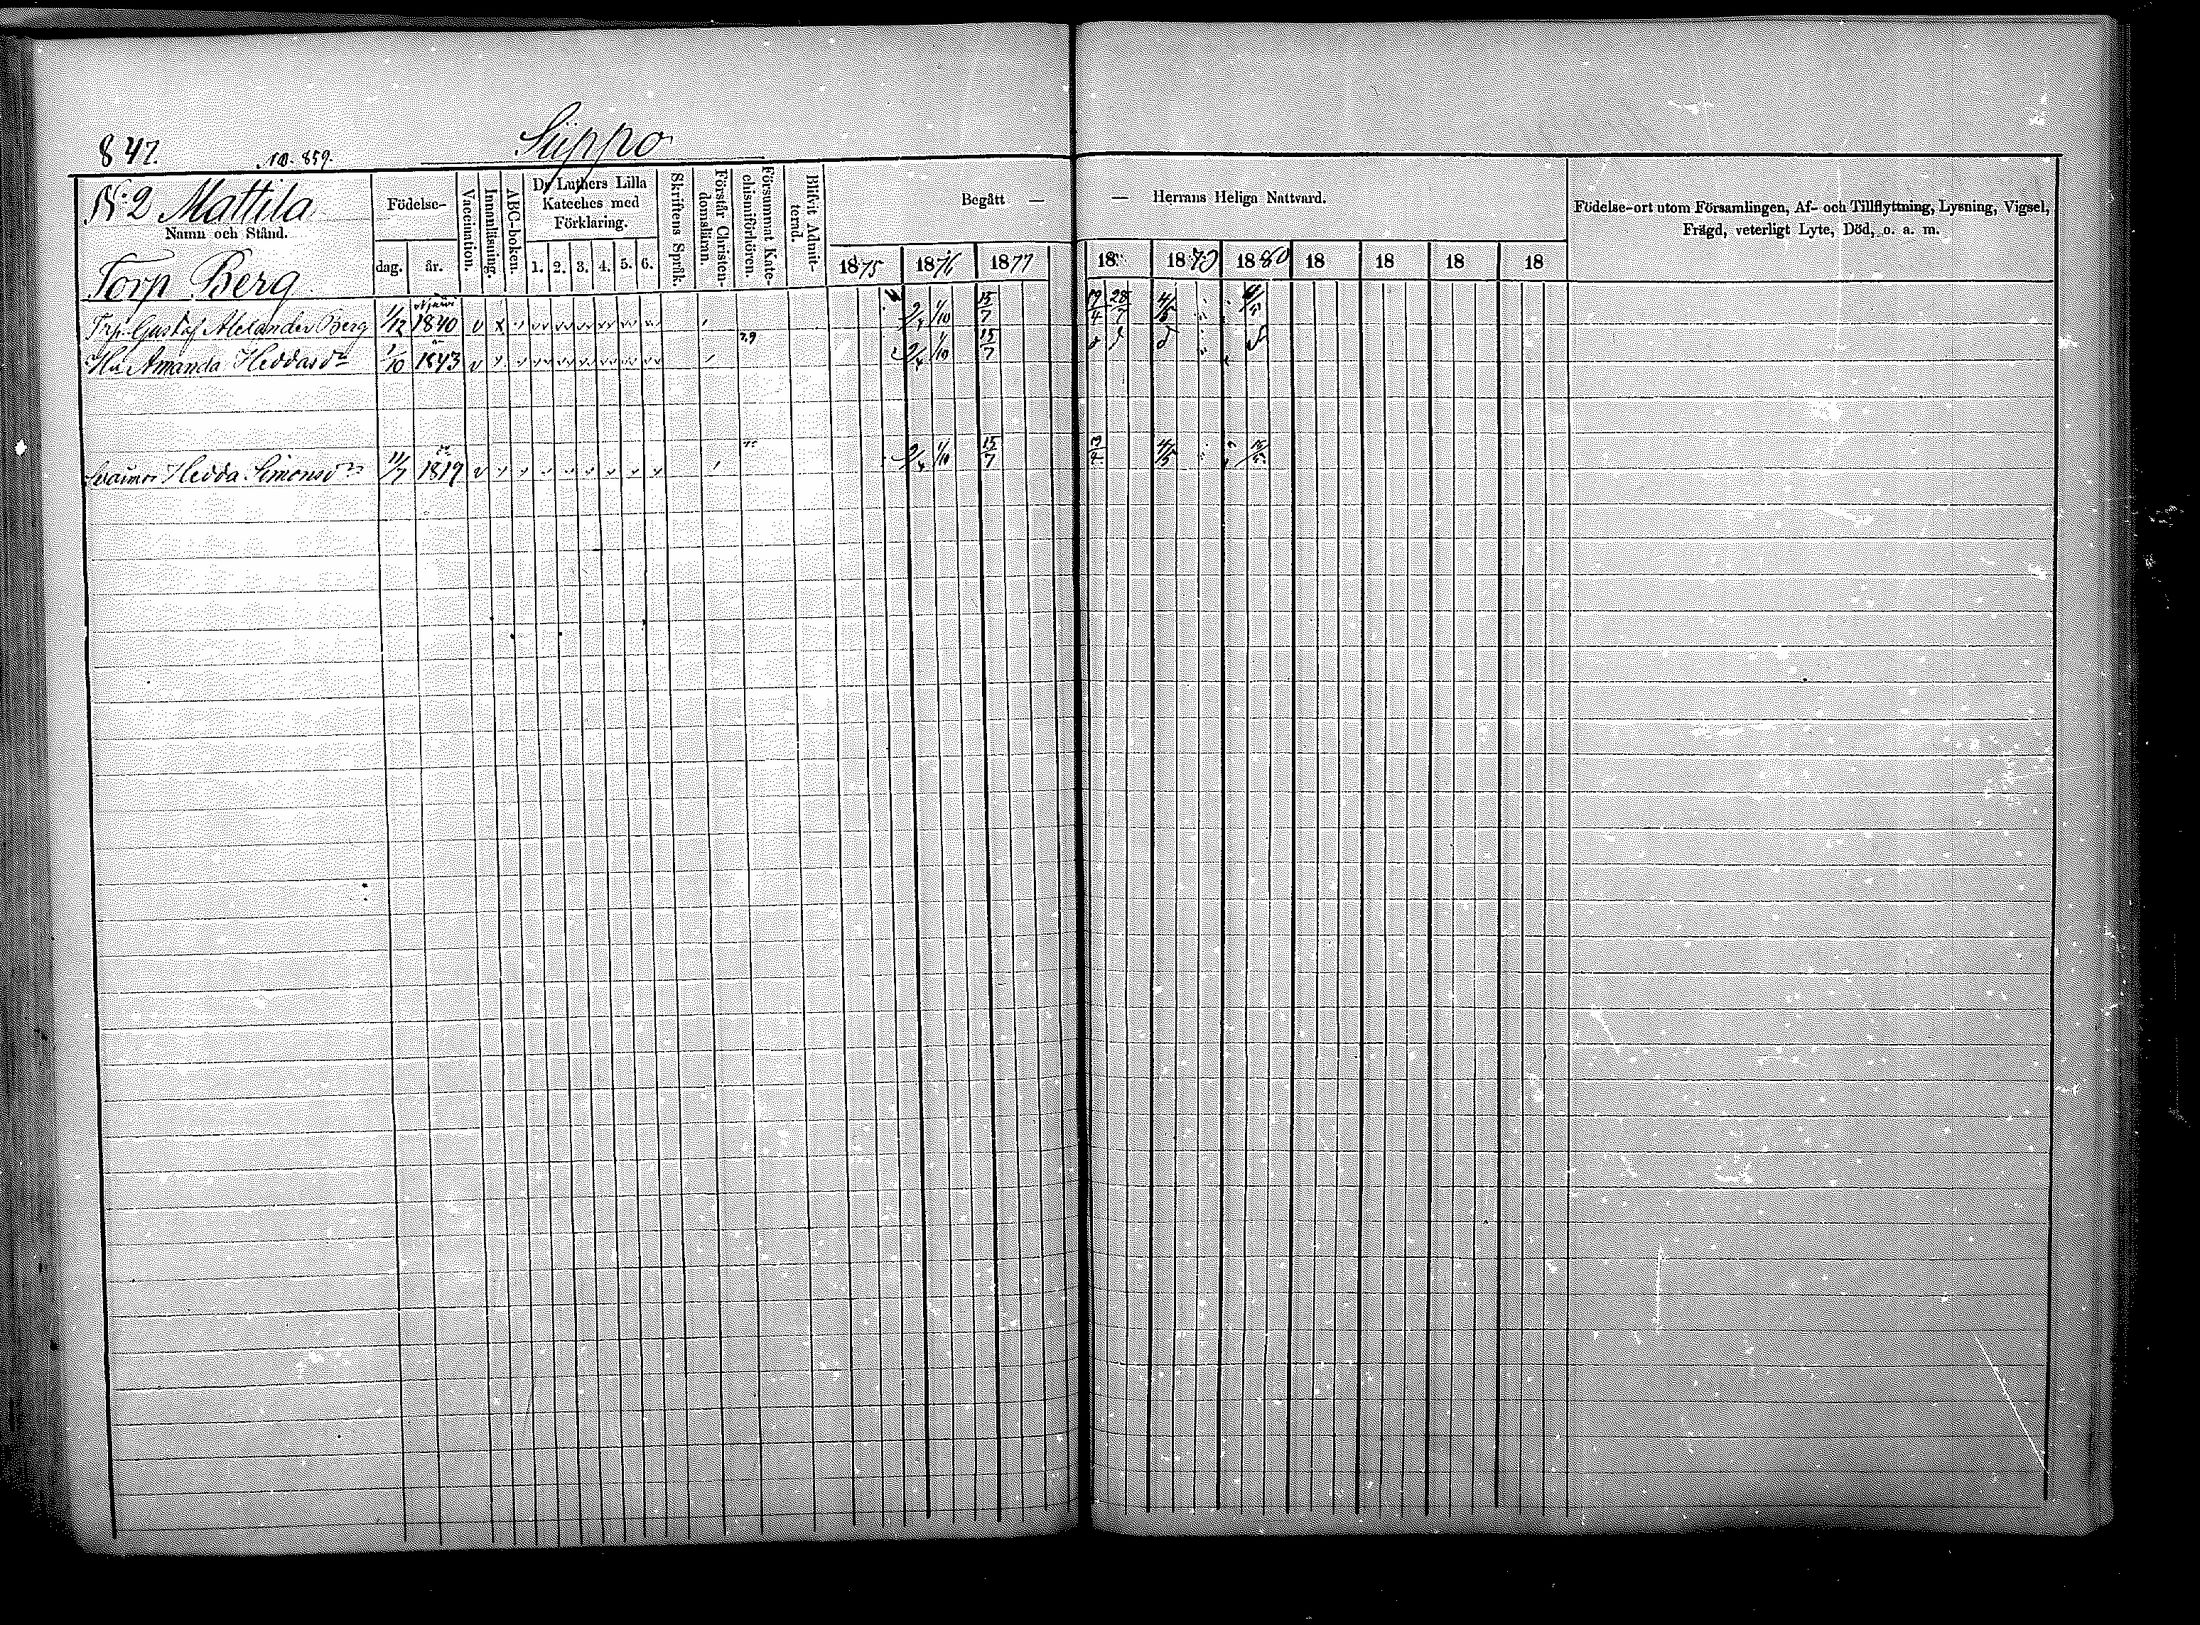 847. No. 859. Süppo
No 2 Mattila
Namn och Stånd.
Torp Berg
Födelse-
dag. år.
Vaccination.
Innanläsning.
ABC-boken.
Dr Luthers Lilla
Kateches med
Förklaring.
1. 2. 3. 4. 5. 6.
Skriftens Språk.
Förstår Christen-
domslänn.
Försummat Kate-
chismiförhören.
Blifvit Admit-
terad.
Begått — — Herrans Heliga Nattvard.
1875 1876 1877 18 18 1880 18 18 18 18
Födelse-ort utom Församlingen, Af- och Tillflyttning, Lysning, Vigsel,
Frägd, veterligt Lyte, Död, o. a. m.
Trp. Gustaf Alexander Berg 1/12 1840 v x v v v v v v v 2/4 1/10 15/7 19/4 28/7 4/5
Hu Amanda Heddasdr /10 1843 v v v v v v v v v 79 2/4 1/10 15/7 d d d d
Hedda Simonsdr 11/7 1819 v v v v v v v v v 2/4 1/10 15/7 4/5